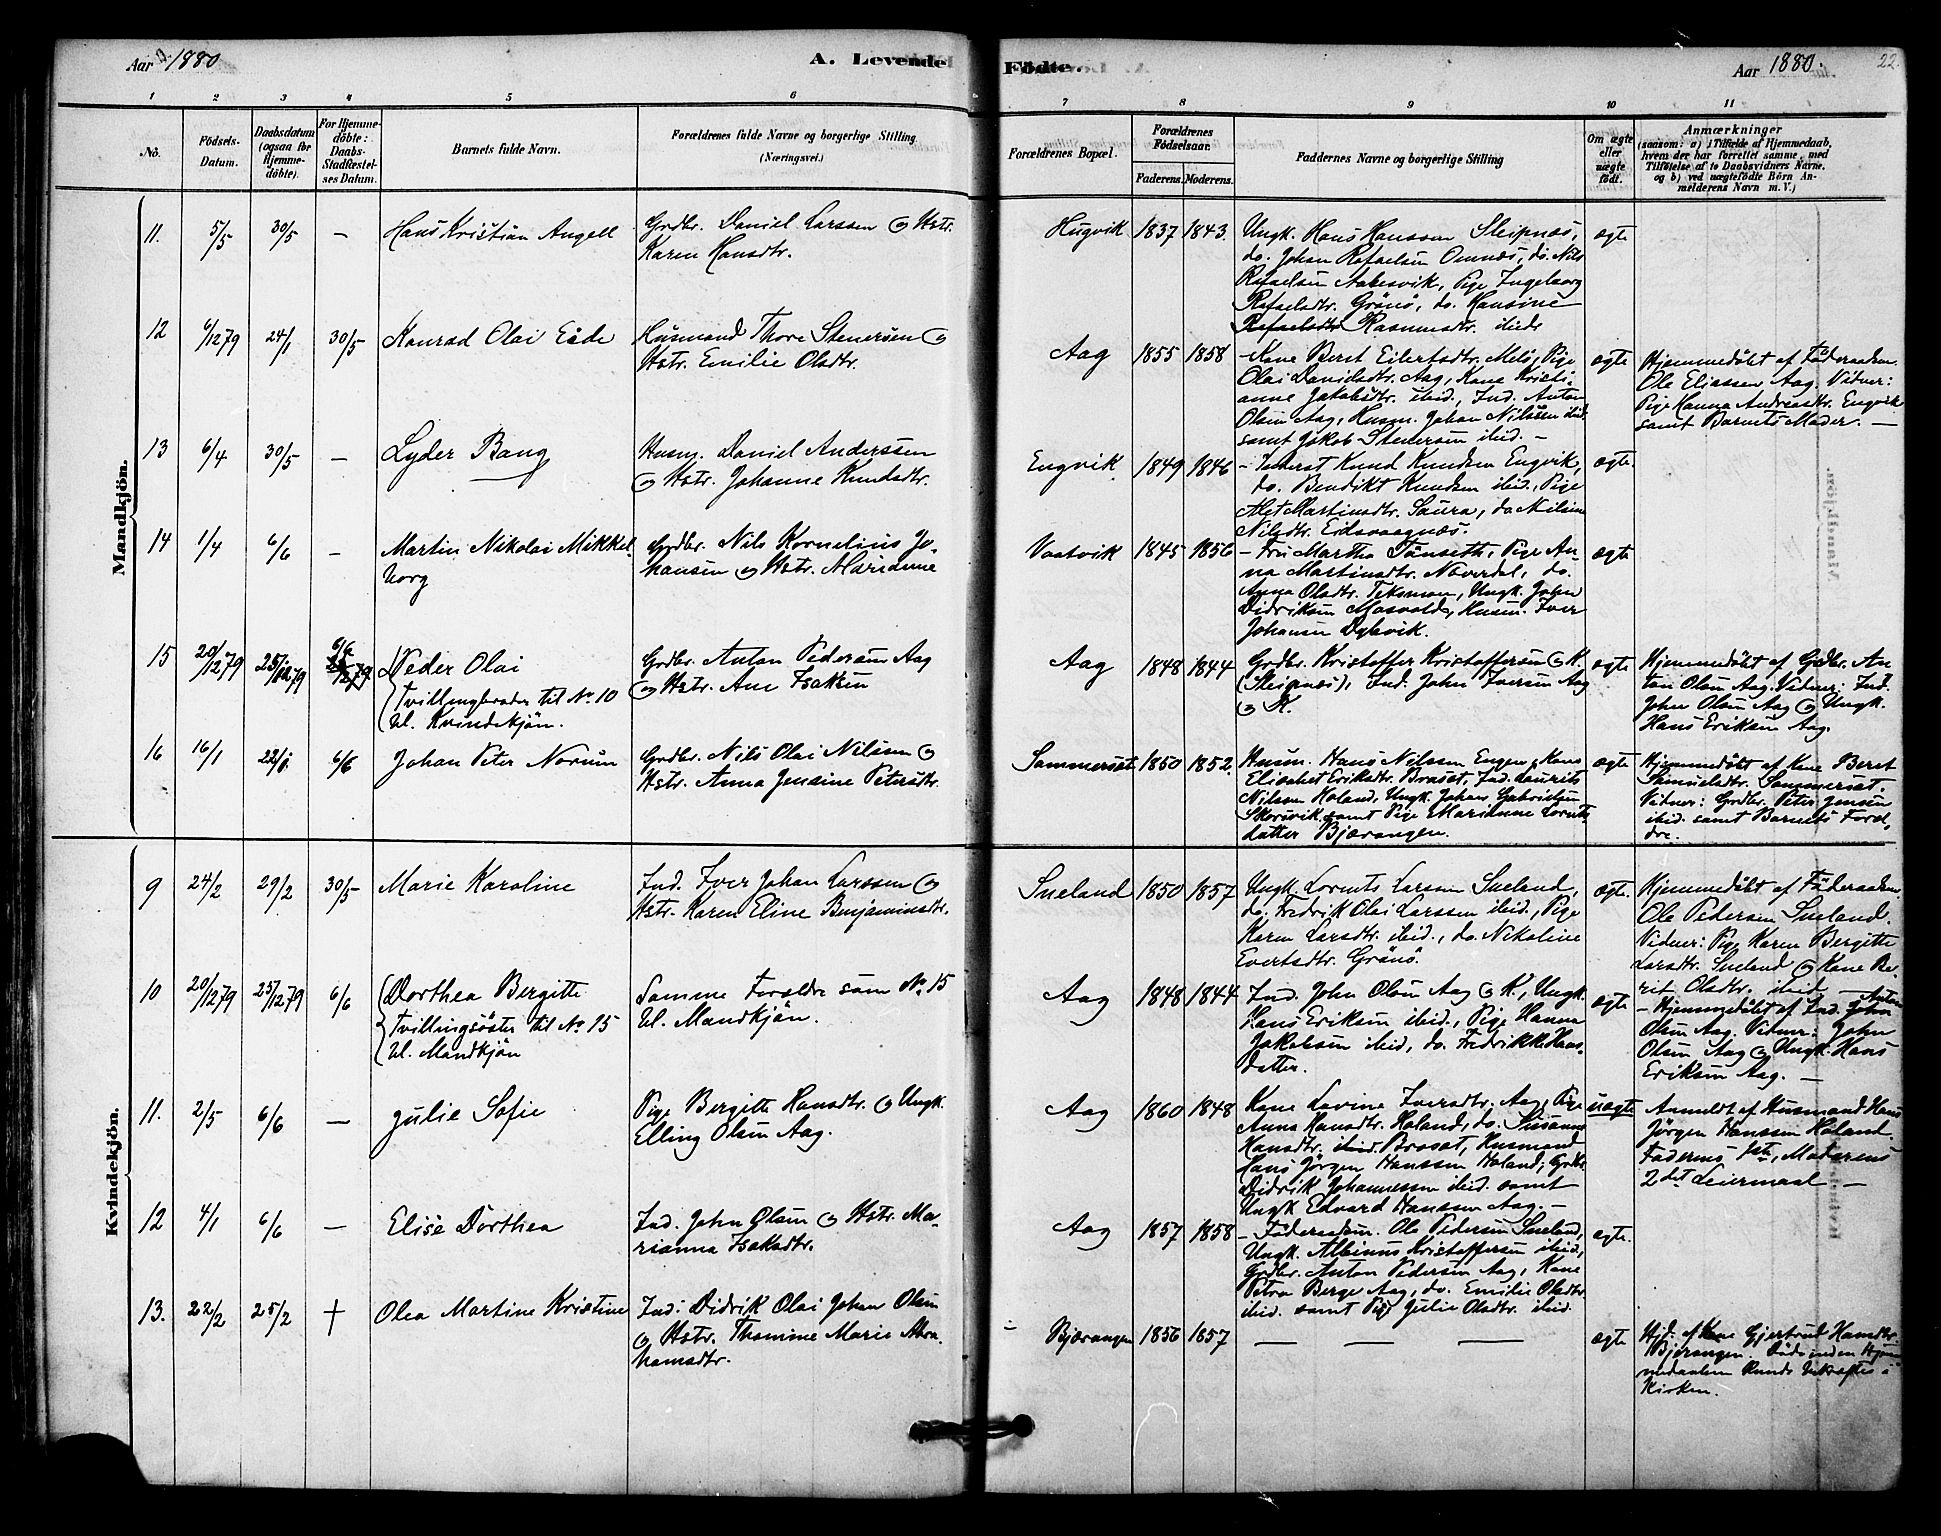 Aar 1880
A. Levende
1 2 3 4 5 6
Nô.
Födsels-
Datum.
Daabsdatum
(ogsaa for
Hjemme-
döbte).
For Hjemme-
döbte:
Daabs-
Stadfæstel-
ses Datum.
Barnets fulde Navn.
Forældrenes fulde Navne og borgerlige Stilling
(Næringsvei.)
Mandkjön.
11. 5/5 30/5 — Hans Kristian Angell
Grdbr. Daniel Larssen og Hstr.
Karen Hansdtr.
12 6/12 79 24/1 30/5 Konrad Olai Eide
Husmand Thore Stenersen og
Hstr. Emilie Olsdtr.
13 6/4 30/5 — Lyder Bang
Husm. Daniel Anderssen
og Hstr. Johanne Knudsdtr.
14 1/4 6/6 — Martin Nikolai Mikkel-
borg
Grdbr. Nils Kornelius Jo-
hansen og Hstr. Marianne
15 20/12 79 25/12 79 6/6 Peder Olai
Tvillingbroder til No 10
bl. Kvindekjön.
Grdbr. Anton Pedersen Aag
og Hstr. Ane Isaksen
16 16/1 22/1 6/6 Johan Peter Norum
Grdbr. Nils Olai Nilssen og
Hstr. Anna Jensine Petersdtr.
Kvindekjön.
9 24/2 29/2 30/5 Marie Karoline
Ind. Iver Johan Larssen og
Hstr. Karen Eline Benjaminsdtr.
10 20/12 79 25/12 79 6/6 Dorthea Bergitte
Tvillingsöster til No 15
bl. Mandkjön
Samme Foreldre som No 15
bl. Mandkjön.
11. 2/5 6/6 — Julie Sofie
Pige Bergitte Hansdtr. og Ungk.
Elling Olsen Aag.
12 4/1 6/6 — Elise Dorthea
Ind. John Olsen og Hstr. Ma-
rianna Isaksdtr.
13. 22/2 25/2 + Olea Martine Kristine
Ind. Didrik Olai Johan Olsen
og Hstr. Thomine Marie Abra-
hamsdtr.
Födte.
Aar 1880.
22.
7 8 9 10 11
Forældrenes Bopæl.
Forældrenes
Födselsaar.
Faderens. Moderens.
Faddernes Navne og borgerlige Stilling
Om ægte
eller
uægte
födt.
Anmærkninger
(saasom: a) i Tilfælde af Hjemmedaab,
hvem der har forrettet samme, med
Tilföielse af to Daabsvidners Navne,
og b) ved uægtefödte Börn An-
melderens Navn m. V.)
Hugvik 1837 1843.
Ungk. Hans Hanssen Sleipnes,
do. Johan Rafaelsen Omnes, do. Nils
Rafaelsen Aakesvik, Pige Ingeborg
Rafaelsdtr. Grönö, do. Hansine
Rafaelsdtr Rasmusdtr. ibid.
ægte
Aag 1855 1858
- Kone Beret Eilertsdtr. Melö, Pige
Olai Danielsdtr. Aag, Kone Kristi-
anne Jakobsdtr. ibid., Ind. Anton
Olsen Aag, Husm. Johan Nilssen ibid.
samt Jakob Stenersen ibid. -
ægte
Hjemmedöbt af Föderaadsm.
Ole Eliassen Aag. Vidner:
Pige Hanna Andreasdtr. Engvik
samt Barnets Moder. —
Engvik 1849 1846
- Knud Knudsen Engvik,
do. Bendikt Knudsen ibid., Pige
Alet Martinsdtr. Saura, do
Nilsdtr. Eidsvaagnes.
ægte.
Vaatvik 1845 1856
- Fru Martha Tönseth, Pige An-
na Martinsdtr. Noverdal, do.
Anna Olsdtr. Teksmon, Ungk. John
Didriksen Mosvold, Husm. Iver
Johansen Dybvik.
ægte
Aag 1848 1844
Grdbr. Kristoffer Kristoffersen og K.
(Sleipnes), Ind. John Iversen Aag
og K.
ægte
Hjemmedöbt af Grdbr. An-
ton Olsen Aag. Vidner: Ind.
John Olsen Aag og Ungk.
Hans Eriksen Aag.
Sommerset 1850 1852.
Husm. Hans Nilssen Engen, Kone
Elisabet Eriksdtr. Braset, Ind. Laurits
Nilssen Holand, Ungk. Johan Gabrielsen
Skorivik samt Pige Marianne Lornts-
datter Bjærangen.
ægte
Hjemmedöbt af Kone Beret
Samuelsdtr. Sommerset.
Vidner: Grdbr. Peter Jensen
ibid. samt Barnets Foræl-
dre.
Sneland 1850 1857
Ungk. Lornts Larssen Sneland,
do. Fredrik Olai Larssen ibid., Pige
Karen Larsdtr. ibid., do. Nikoline
Evertsdtr. Grönö.
ægte.
Hjemmedöbt af Föderaadsm.
Ole Pedersen Sneland.
Vidner: Pige Karen Bergitte
Larsdtr. Sneland og Kone Be-
rit Olsdtr. ibid. —
Aag 1848 1844
Ind. John Olsen Aag og K., Ungk.
Hans Eriksen ibid., Pige Hanna
Jakobsen ibid, do. Fredrikke Hans-
datter.
ægte
- Hjemmedöbt af Ind. John Anton
Olsen Aag. Vidner: John
Olsen Aag og Ungk. Hans
Eriksen Aag. —
Aag 1860 1848
Kone Lovine Iversdtr. Aag, Pige
Anna Hansdtr. Holand, do. Susanna
Hansdtr. ibid. Braset, Husmand
Hans Jörgen Hanssen Holand, Grdbr.
Didrik Johannessen ibid. samt
Ungk Edvard Hanssen Aag. -
uægte
Anmeldt af Husmand Hans
Jörgen Hanssen Holand.
Faderens 1ste, Moderens
2det Leiermaal —
Aag 1857 1858
- Föderaadsm. Ole Pedersen Sneland,
Ungk. Albinus Kristoffersen ibid,
Grdbr. Anton Pedersen Aag, Kone
Petra Berge Aag, do. Emilie Olsdtr.
ibid. samt Pige Julie Olsdtr. ibid.
ægte.
Bjærangen 1856 1857 — — —
ægte
Hjd. af Kone Gjertrud Hansdtr.
Bjerangen. Döde inden Hjem-
medaaben kunde bekræftes i
Kirken.